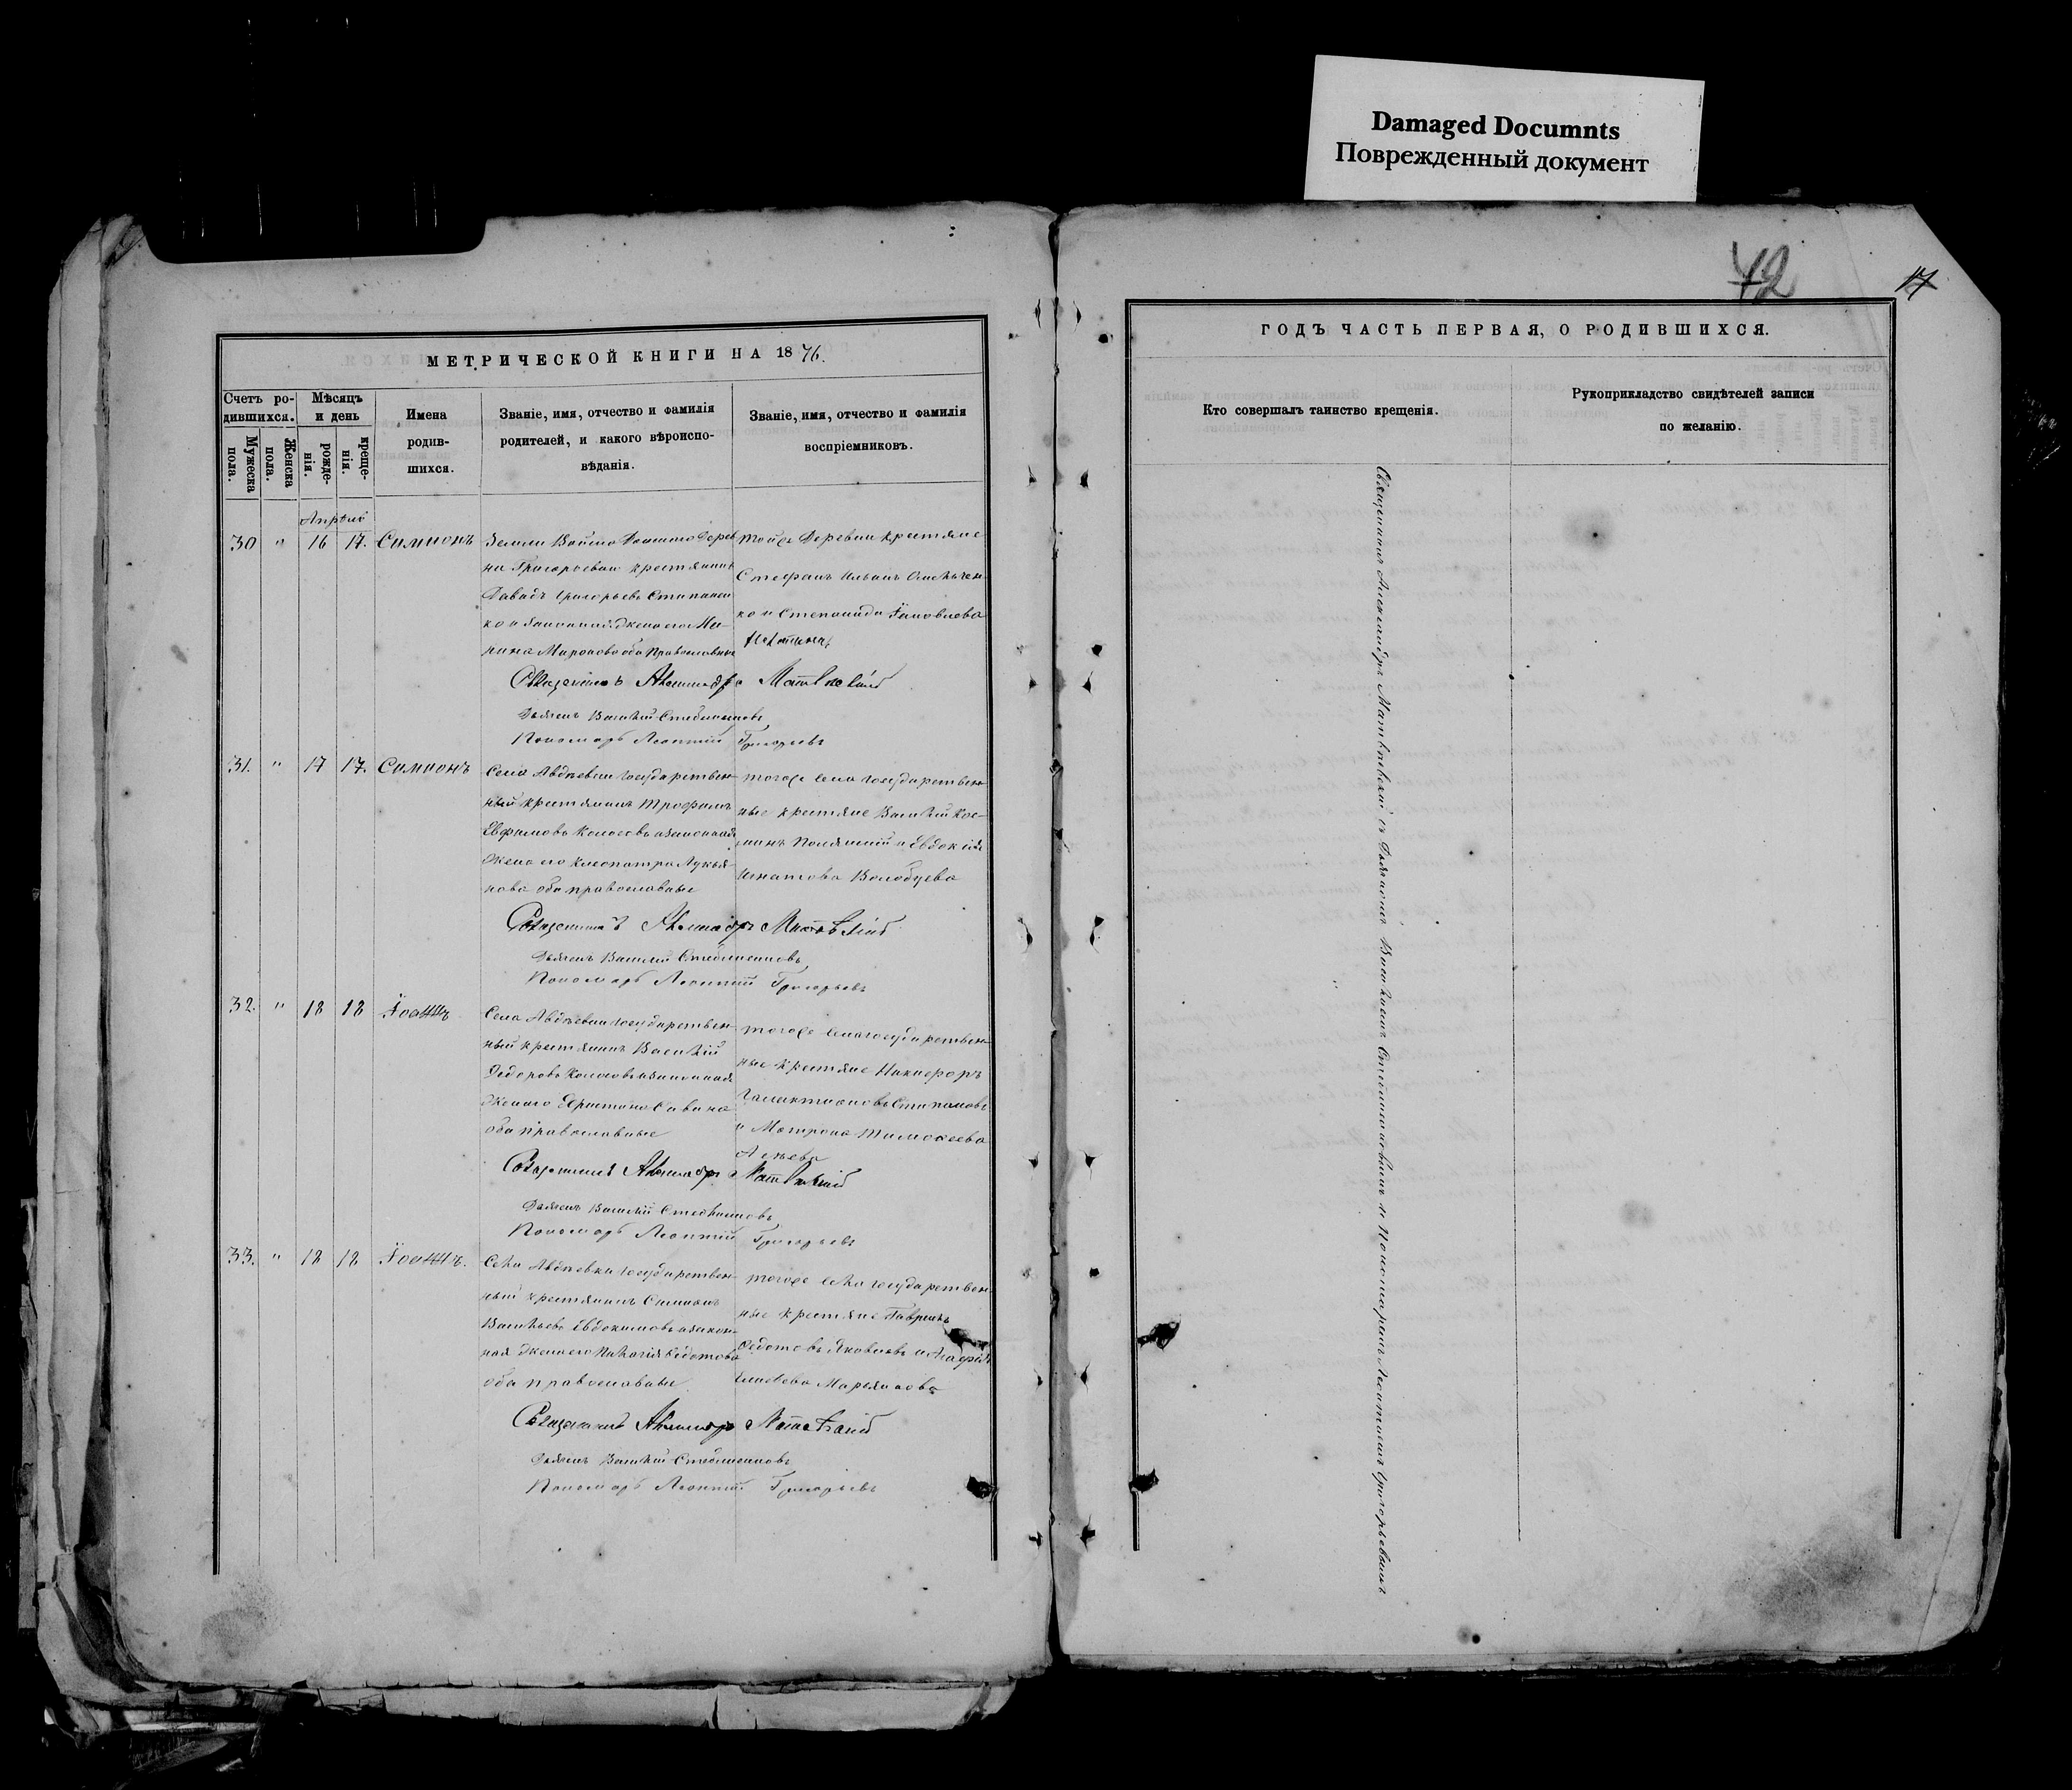 Damaged Documnts
Поврежденный документ
42
17
МЕТРИЧЕСКОЙ КНИГИ НА 1876.
Счетъ ро-
дившихся.
Мужеска
пола.
Женска
пола.
Мѣсяцъ
и день
рожде-
нія.
креще-
нія.
Имена
родив-
шихся.
Званіе, имя, отчество и фамилія
родителей, и какого вѣроиспо-
вѣданія.
Званіе, имя, отчество и фамилія
воспріемниковъ.
Апрѣль
30 " 16 17. Симионъ
Земли Войска Донского дерев
ни Григорьевки крестьянинъ
Давидъ Григорьевъ
ко и законная жена его
Миронова оба православные
тойже деревни крестьяне
Стефанъ Ильинъ
ко и Степанида Іаковлева
Священникъ Александръ Матвѣевскій
Дьячекъ Василій
Пономарь Леонтій Григорьевъ
31. " 17 17. Симионъ
Села Авдѣевки государствен-
ный крестьянинъ Трофимъ
Евфимовъ и законная
жена его Клеопатра Лукья-
нова оба православные
тогоже села государствен-
ные крестьяне Василій Кос-
минъ и Евдокія
Игнатова Волобуева
Священникъ Александръ Матвѣевскій
Дьячекъ Василій
Пономарь Леонтій Григорьевъ
32. " 18 18 Іоаннъ
Села Авдѣевки государствен-
ный крестьянинъ Василій
Ѳедоровъ и законная
жена его Христина Савина
оба православные
тогоже села государствен-
ные крестьяне Никифоръ
Галактіоновъ
и Матрона Тимоѳеева
Священникъ Александръ Матвѣевскій
Дьячекъ Василій
Пономарь Леонтій Григорьевъ
33. " 18 18 Іоаннъ.
Села Авдѣевки государствен-
ный крестьянинъ Симионъ
Васильевъ Евдокимовъ и закон-
ная жена его Пелагія Ѳедотова
оба православные
тогоже села государствен-
ные крестьяне Гавріилъ
Ѳедотовъ Яковлевъ и Агафія
Священникъ Александръ Матвѣевскій
Дьячекъ Василій
Пономарь Леонтій Григорьевъ
ГОДЪ ЧАСТЬ ПЕРВАЯ, О РОДИВШИХСЯ.
Кто совершалъ таинство крещенія.
Рукоприкладство свидѣтелей записи
по желанію.
Священникъ Александръ Матвѣевскій съ Дьячкомъ Василіемъ и Пономаремъ Леонтіемъ Григорьевымъ